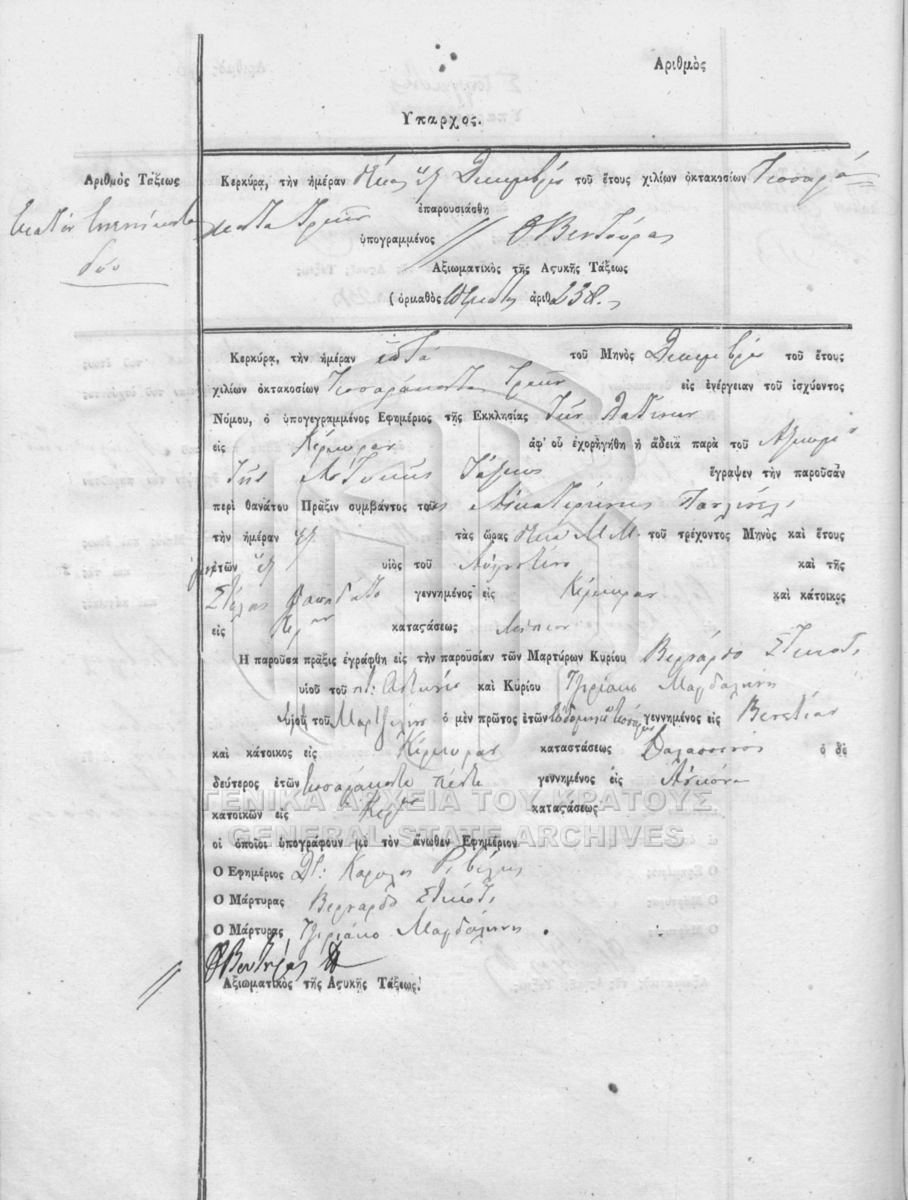 Αριθμὸς
Υπαρχος.
Αριθμὸς Τάξεως
ἑκατὸν ἐνενήκοντα
δύο
Κερκύρα, τὴν ἡμέραν Δεκεμβρίου τοῦ ἔτους χιλίων ὀκτακοσίων Τεσσαρά
κοντα τριῶν ἐπαρουσιάσθη
ὑπογραμμένος Βεντούρας
Αξιωματικὸς τῆς Αςυκῆς Τάξεως
(ὁρμαθὸς ἀριθ. 238.
Κερκύρα, τὴν ἡμέραν ἑπτά τοῦ Μηνὸς Δεκεμβρίου τοῦ ἔτους
χιλίων ὀκτακοσίων Τεσσαράκοντα τριῶν εἰς ἐνέργειαν τοῦ ἰσχύοντος
Νόμου, ὁ ὑπογεγραμμένος Εφημέριος τῆς Εκκλησίας τῶν Λατίνων
εἰς Κέρκυραν ἀφ' οὗ ἐχορηγήθη ἡ ἄδεια παρὰ τοῦ Αξιωμ
τῆς Αστυκῆς Τάξεως ἔγραψεν τὴν παροῦσαν
περὶ θανάτου Πρᾶξιν συμβάντος τοῦ της Αικατερίνης
τὴν ἡμέραν τὰς ὥρας Μ.Μ. τοῦ τρέχοντος Μηνὸς καὶ ἔτους
ἐτῶν υἱὸς τοῦ Αυγουστίνο καὶ τῆς
γεννημένος εἰς Κέρκυραν καὶ κάτοικος
εἰς Κερ καταςάσεως
Η παροῦσα πρᾶξις ἐγράφθη εἰς τὴν παρουσίαν τῶν Μαρτύρων Κυρίου Βερνάρδο
υἱοῦ τοῦ ποτ: Αντώνιο καὶ Κυρίου Τζιριάκο Μαγδαλένης
υἱοῦ τοῦ Μαρτζελίνο ὁ μὲν πρῶτος ἐτῶν γεννημένος εἰς Βενετίαν
καὶ κάτοικος εἰς Κέρκυραν καταστάσεως θαλασσινός ὁ δὲ
δεύτερος ἐτῶν τεσσαράκοντα πέντε γεννημένος εἰς Ανκόνα
κατοικῶν εἰς Κερ καταςάσεως
οἱ ὁποῖοι ὑπογράφουν μὲ τὸν ἄνωθεν Εφημέριον
Ο Εφημέριος Κάρολος
Ο Μάρτυρας Βερνάρδο
Ο Μάρτυρας Τζιριάκο Μαγδαλένης
Βεντούρας
Αξιωματικὸς τῆς Αςυκῆς Τάξεως
ΓΕΝΙΚΑ ΑΡΧΕΙΑ ΤΟΥ ΚΡΑΤΟΥΣ
GENERAL STATE ARCHIVES